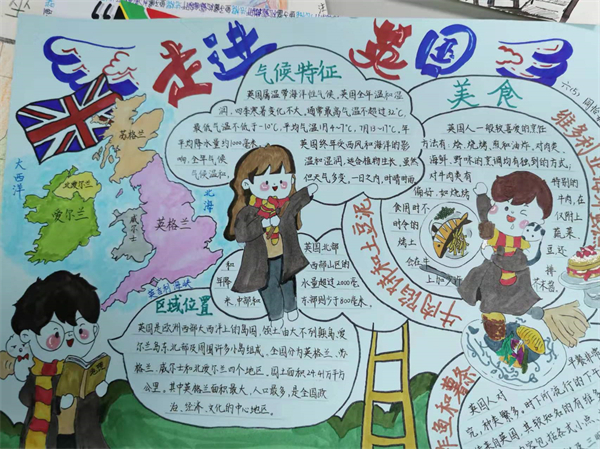 走进英国
六(5)
气候特征
英国属温带海洋性气候,英国全年温和湿
润,四季寒暑变化不大。通常最高气温不超过32℃,
最低气温不低于-10℃,平均气温1月4~7℃,7月13~17℃,年
平均降水量约1000毫米。
英国终年受西风和海洋的影
响,全年气候
温和湿润,适合植物生长,虽然
气候温和,
但天气多变。一日之内,时晴时雨
英国北部
和
西部山区的
年降
水量超过2000毫
米,中部和
东部则少于800毫米。
美食
英国人一般较喜爱的烹饪
方法有:烩、烧烤、煎和油炸。对肉类、
海鲜、野味的烹调均有独到的方式;
对牛肉类有
特别的
偏好,如烧烤
牛肉,在
食用时不
仅附上
时令的
蔬菜
烤土
豆,还
会在牛
排
上加少许
芥末酱,
维多利亚
牛肉腰酥和土豆泥
大西洋
苏格兰
北爱尔兰
爱尔兰
北海
威尔士
英格兰
英吉利海峡
区域位置
英国是欧洲西部大西洋上的岛国,领土由大不列颠岛,爱
尔兰岛东北部及周围许多小岛组成。全国分为英格兰、苏
格兰、威尔士和北爱尔兰四个地区,国土面积24.41万平方
公里。其中英格兰面积最大,人口最多,是全国政
治、经济、文化的中心地区。
炸鱼和薯条
英国人对
早餐
完,种类繁多。时下所流行的下午